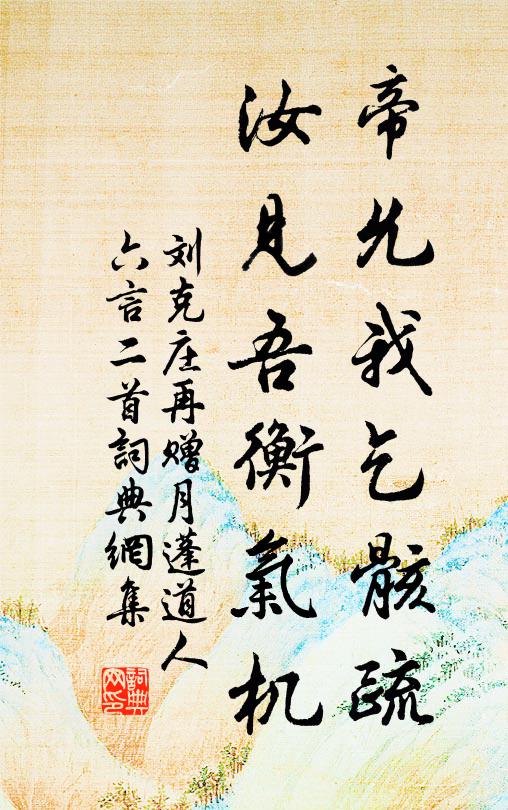 帝允我乞骸疏
汝見吾衡氣机
刘克庄再赠月蓬道人
六言二首詞典網集
詞典网印